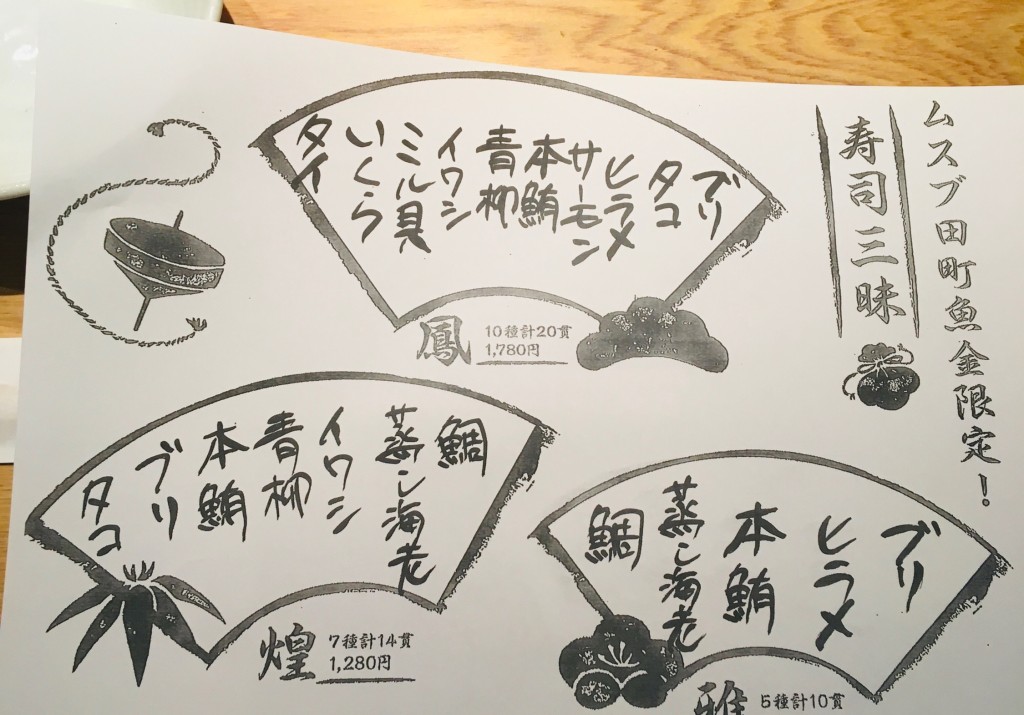 ムスブ田町魚金限定!
寿司三昧
ブリ
タコ
ヒラメ
サーモン
本鮪
青柳
イワシ
ミル貝
いくら
タイ
鳳
10種計20貫
1,780円
鯛
蒸し海老
イワシ
青柳
本鮪
ブリ
タコ
煌
7種計14貫
1,280円
ブリ
ヒラメ
本鮪
蒸し海老
鯛
雅
5種計10貫